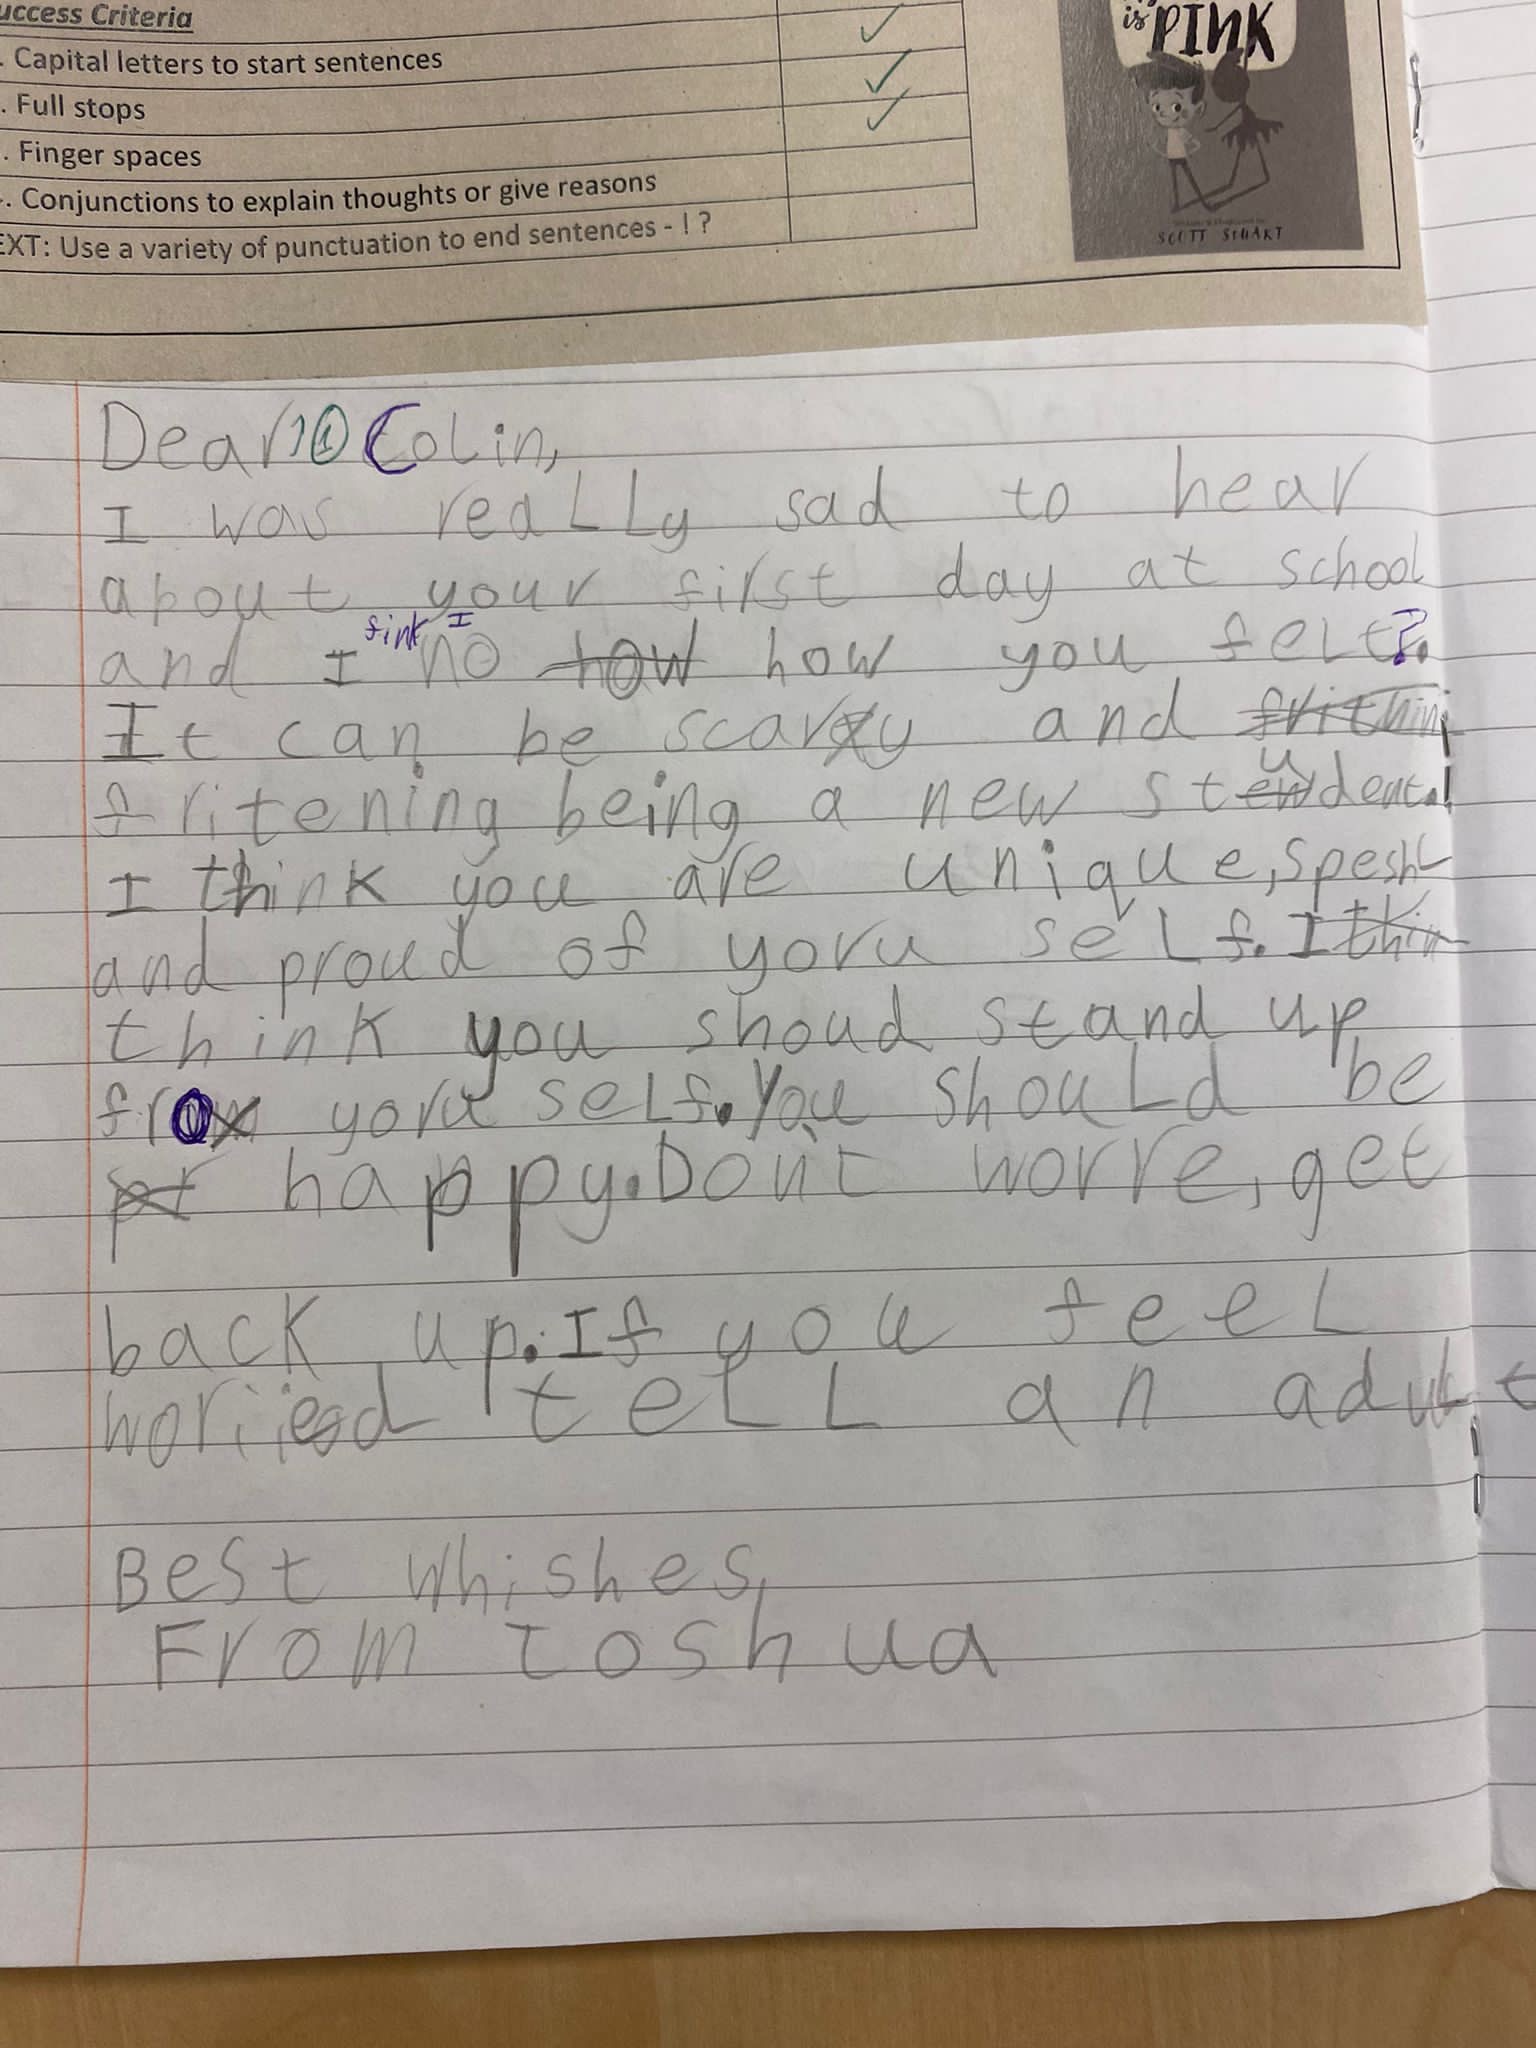 uccess Criteria
. Capital letters to start sentences
. Full stops
. Finger spaces
. Conjunctions to explain thoughts or give reasons
EXT: Use a variety of punctuation to end sentences - ! ?
is PINK
SCOTT STUART
Dear Colin,
I was really sad to hear
about your first day at school
and I fink I no how how you felt?.
It can be scary and frithini
fritening being a new student.!
I think you are unique, speshl
and proud of yoru self. I thin
think you shoud stand up
fro yoru self. You should be
pr happy. Don't worre, get
back up. If you feel
woried tell an adult
Best whishes,
From Joshua